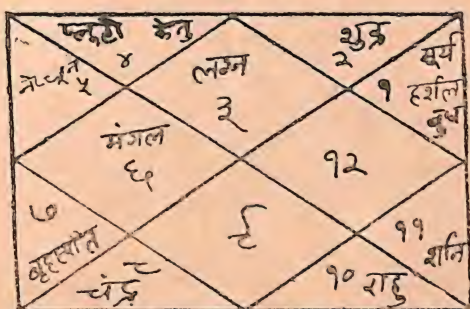 प्लूटो केतु
४
लग्न
३
शुक्र
२
सूर्य
१ हर्शल
बुध
नेप्च्यून
५
मंगल
६
१२
७
बृहस्पति
९
११
शनि
चंद्र ८
१० राहु